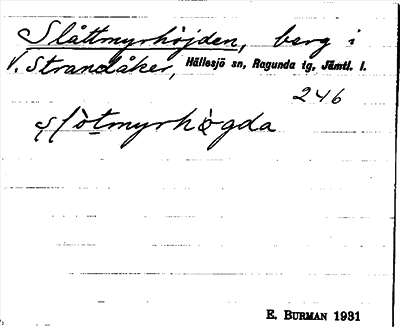 Slåttmyrhöjden, berg i
V. Strandåker, Hällesjö sn, Ragunda tg, Jämtl. l.
246
slòtmyrhògda
E. BURMAN 1931